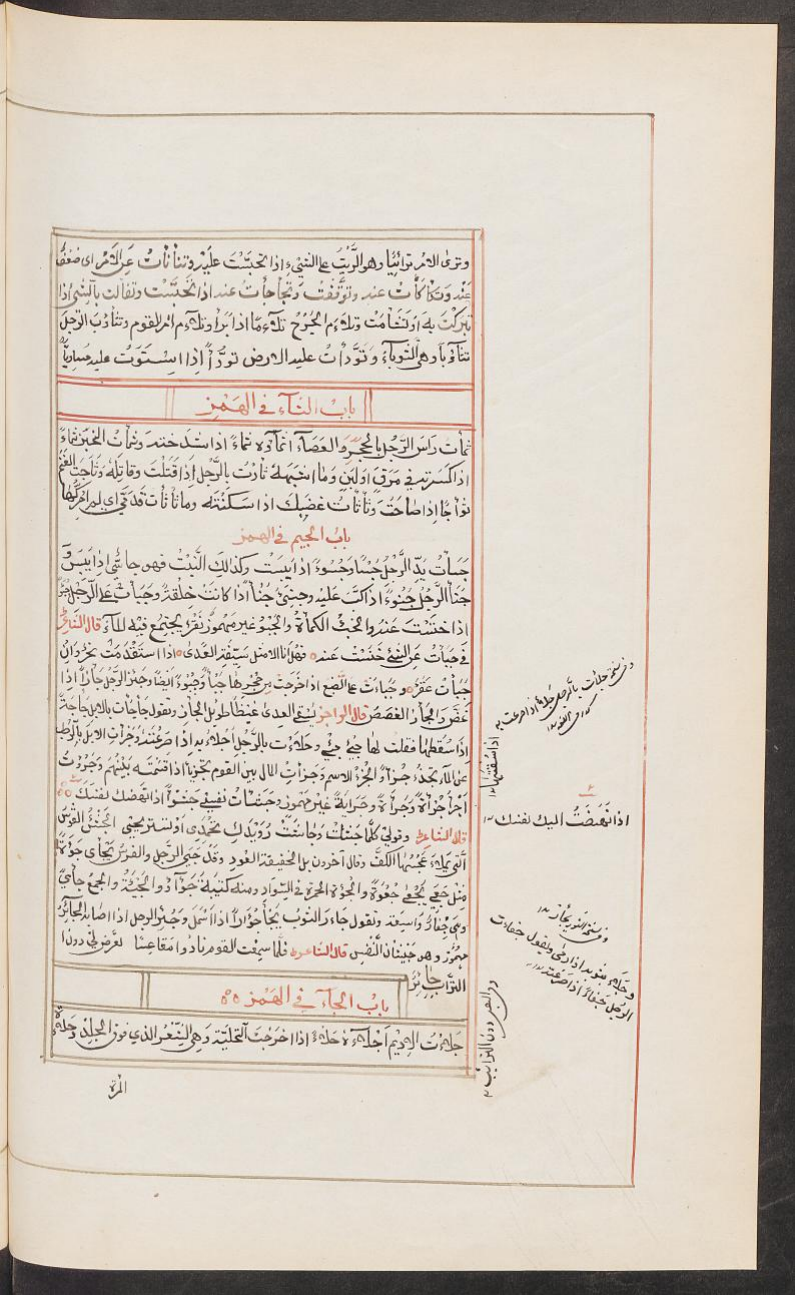 وترى الامر توانيا وهو الريث على الشيء اذا تحبست عليه وتنأنأت عن الامر اى ضعفت
عنه وتكأكأت عنه وتوقفت وتجأجأت عنه اذا تحبست وتفالت بالشئ اذا
تبركت به او تشأمت وتلاءم الجرح تلاءما اذا برأ وتلاءم امر القوم وتثاوب الرجل
تثاوبا وهى الثوباء وتودأت عليه الارض تودأ اذا استوت عليه
باب الثاء فى الهمز
ثمأت راس الرجل بالحجر والعصا اثماؤه ثماء اذا شدخته وثمأت الخبز ثماء
اذا كسرته فى مرق او لبن وما اشبهه ثأرت بالرجل اذا قتلت وقاتله وثأجت الغنم
ثواجا اذا صاحت وثأثأت غضبك اذا سكنته وما ثأثأت قدمى اى لم احركها
باب الجيم فى الهمز
جسأت يد الرجل جسأ وجسوء اذا يبست وكذلك النبت فهو جاسئ اذا يبس و
جنأ الرجل جنوء اذا كب عليه وجنئ جنأ اذا كانت خلقة وجبأت عن الرجل
اذا خنست عنه والجبء الكمأة والجبو غير مهموز نقر يجتمع فيه الماء قال الشاعر
فى جبأت عن الشئ خنست عنه فهل انا الا مثل سيقة العدى اذا استقدمت نحر وان
جبأت عقر وجبأت على الضبع اذا خرجت من حجرها جبأ وجبوء ايضا وجئز الرجل جأزا اذا
غص والجأز الغصص قال الراجز يسقى العدى غيظا طويل الجأز وتقول جأجأت بالابل جأجأة
اذا سقيتها فقلت لها جئ جئ وجلاءت بالرجل اجلاء به اذا صرعته وجزأت الابل بالرطب
عن الماء تجزء جزءا والجزء الاسم وجزأت المال بين القوم تجزيا اذا قسمته بينهم وجروت
اجرأ جرأة وجرأة وجراية غير مهموز وجشأت نفسى جشوأ اذا نهضت نفسك
قال الشاعر وقولى كلما جشأت وجاشت رويدك تحمدى او تستريحى الجشئ القوس
التى يملاء عجسها الكف وقال آخرون بل الخفيفة العود وقد جئى الرجل والفرس يجأى جأوة
مثل جعى يجعى جعوة والجؤة الحمرة فى السواد ومنه كتيبة جأواء والجئية والجمع جأى
وهى حفار واسعة وتقول جأر الثور يجأر جؤارا اذا وجئز الرجل اذا اصابه الجائز
مهموز وهو جيشان النفس قال الشاعر فلما سمعت القوم نادوا مقاعسا تعرض لى دون
الترايب جائز
باب الحاء فى الهمز
حلاءت الاديم احلاءه حلاء اذا اخرجت التحلئة وهى الشعر الذى فوق الجلد وحلاءت
المرة
اذا سقيتها ١٢
وفى نسخة جلأت بالرجل جلاء اذا صرعته ١٢
٤
اذا نهضت اليك نفسك ١٢
وفى نسخة الثور يجأر ١٢
وجلاء بثوبه اذا رمى ويقول جفاءت
الرجل جفاء اذا صرعته ١٢